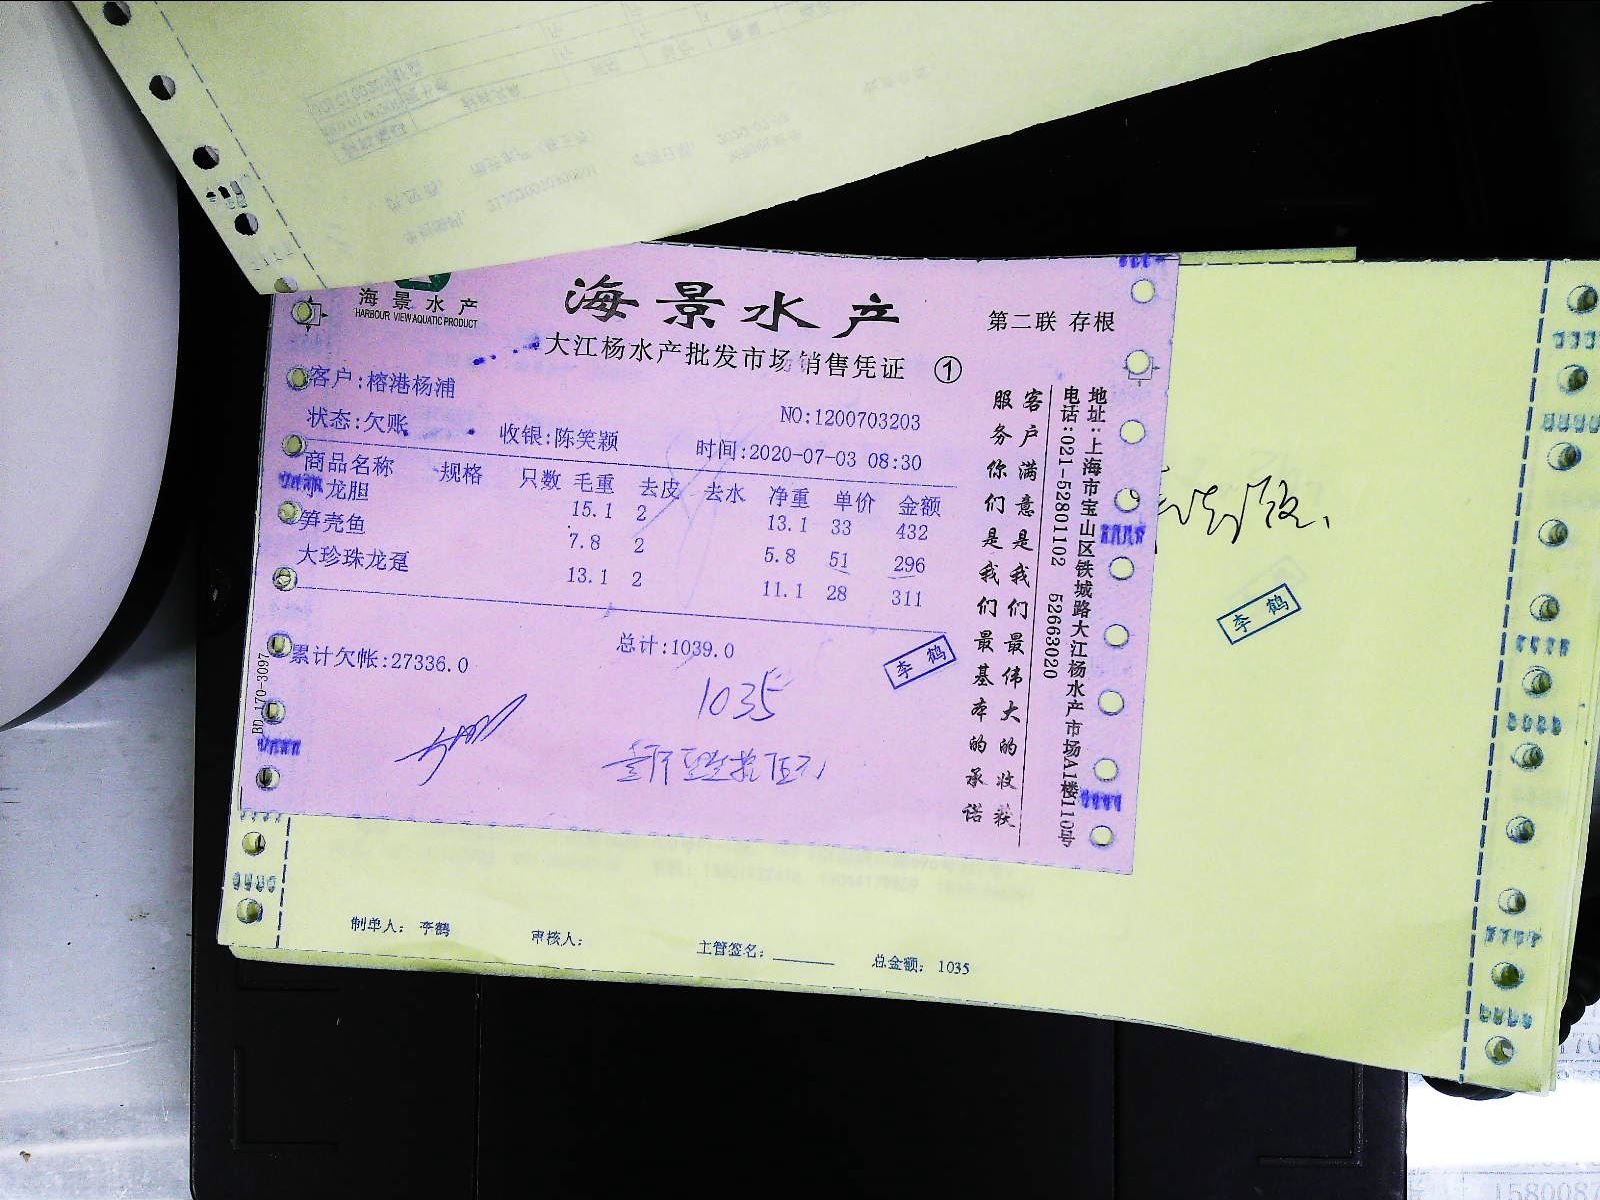 海景水产
HARBOUR VIEW AQUATIC PRODUCT
海景水产
第二联 存根
大江杨水产批发市场销售凭证 ①
客户:榕港杨浦
NO:1200703203
状态:欠账 收银:陈笑颖 时间:2020-07-03 08:30
商品名称 规格 只数 毛重 去皮 去水 净重 单价 金额
小龙胆
15.1 2 13.1 33 432
笋壳鱼
7.8 2 5.8 51 296
大珍珠龙趸
13.1 2 11.1 28 311
累计欠帐:27336.0 总计:1039.0
李鹤
1035
壹仟零叁拾伍元
BD 170-3097
客户满意是我们最伟大的收获
服务你们是我们最基本的承诺
地址:上海市宝山区铁城路大江杨水产市场A1楼110号
电话:021-52801102 52663020
李鹤
制单人: 李鹤 审核人: 主管签名: 总金额: 1035